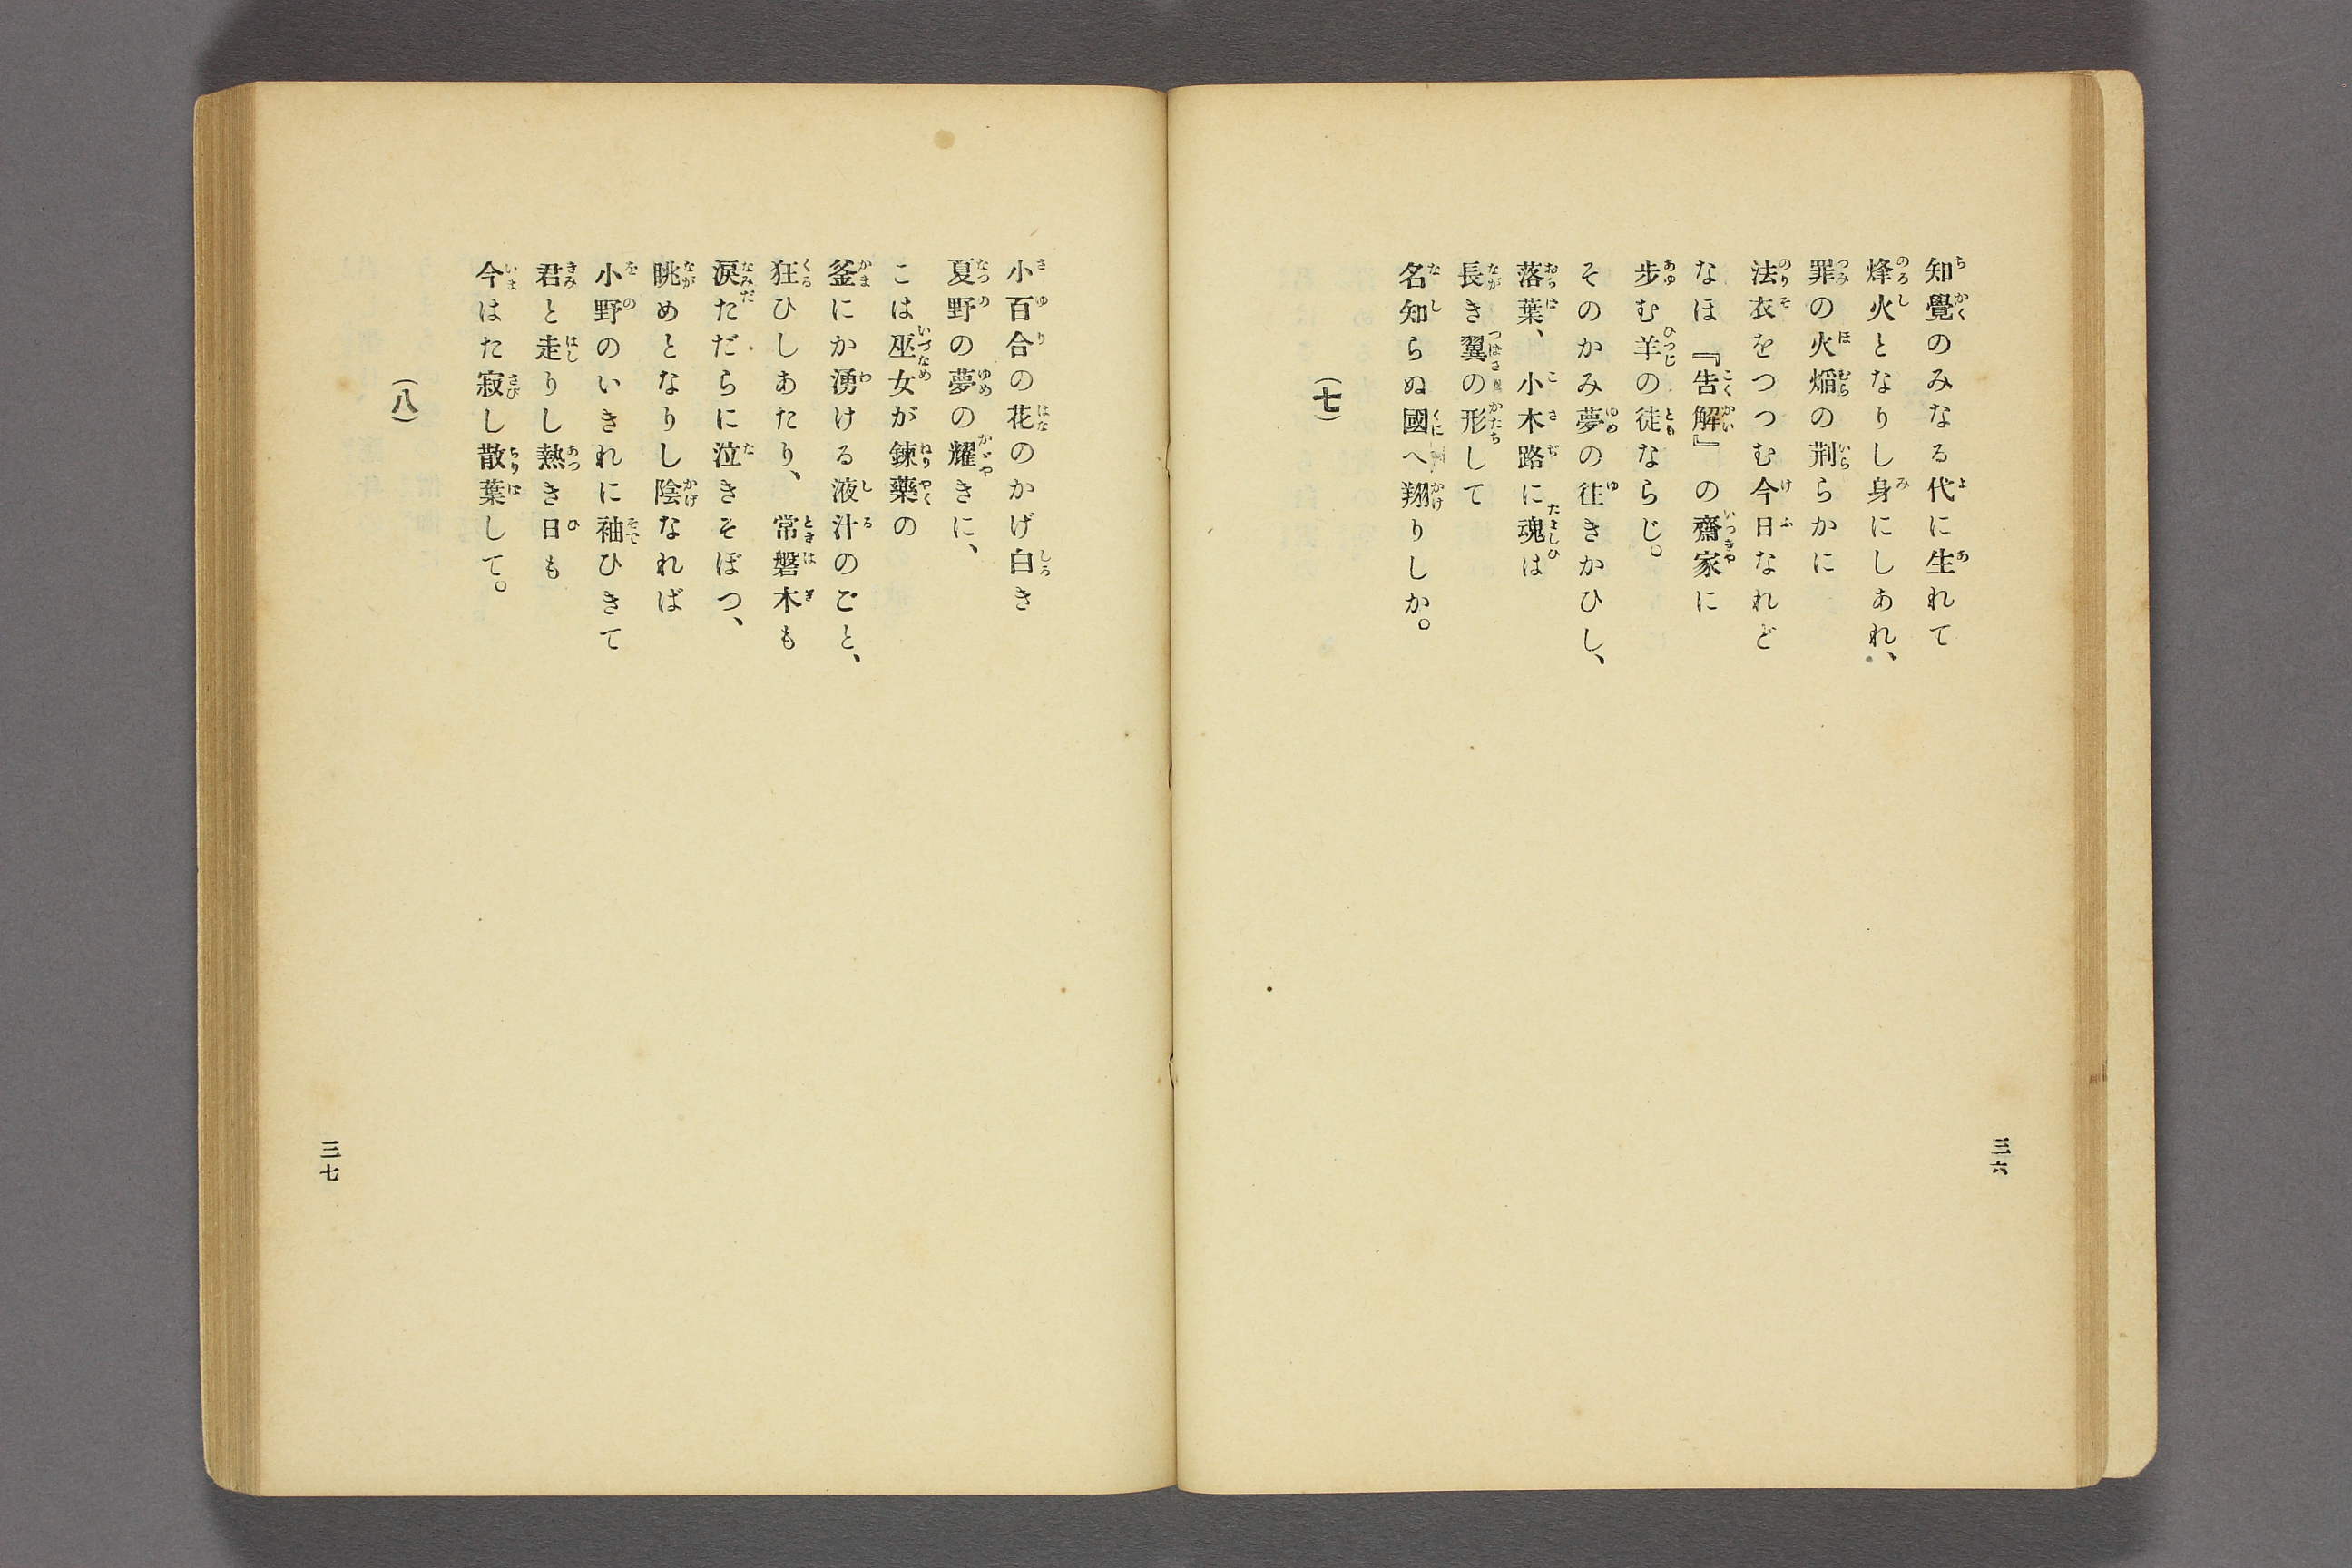 知覺のみなる代に生れて
烽火となりし身にしあれ、
罪の火焔の荆らかに
法衣をつつむ今日なれど
なほ『告解』の齋家に
步む羊の徒ならじ。
そのかみ夢の往きかひし、
落葉、小木路に魂は
長き翼の形して
名知らぬ國へ翔りしか。
(七)
三六
小百合の花のかげ白き
夏野の夢の耀きに、
こは巫女が鍊藥の
釜にか湧ける液汁のごと、
狂ひしあたり、常磐木も
淚ただらに泣きそぼつ、
眺めとなりし陰なれば
小野のいきれに袖ひきて
君と走りし熱き日も
今はた寂し散葉して。
(八)
三七